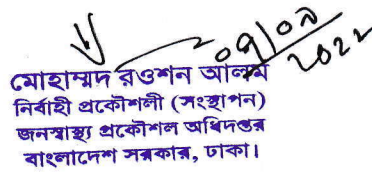 ০৭/০৯
২০২২
মোহাম্মদ রওশন আলম
নির্বাহী প্রকৌশলী (সংস্থাপন)
জনস্বাস্থ্য প্রকৌশল অধিদপ্তর
বাংলাদেশ সরকার, ঢাকা।